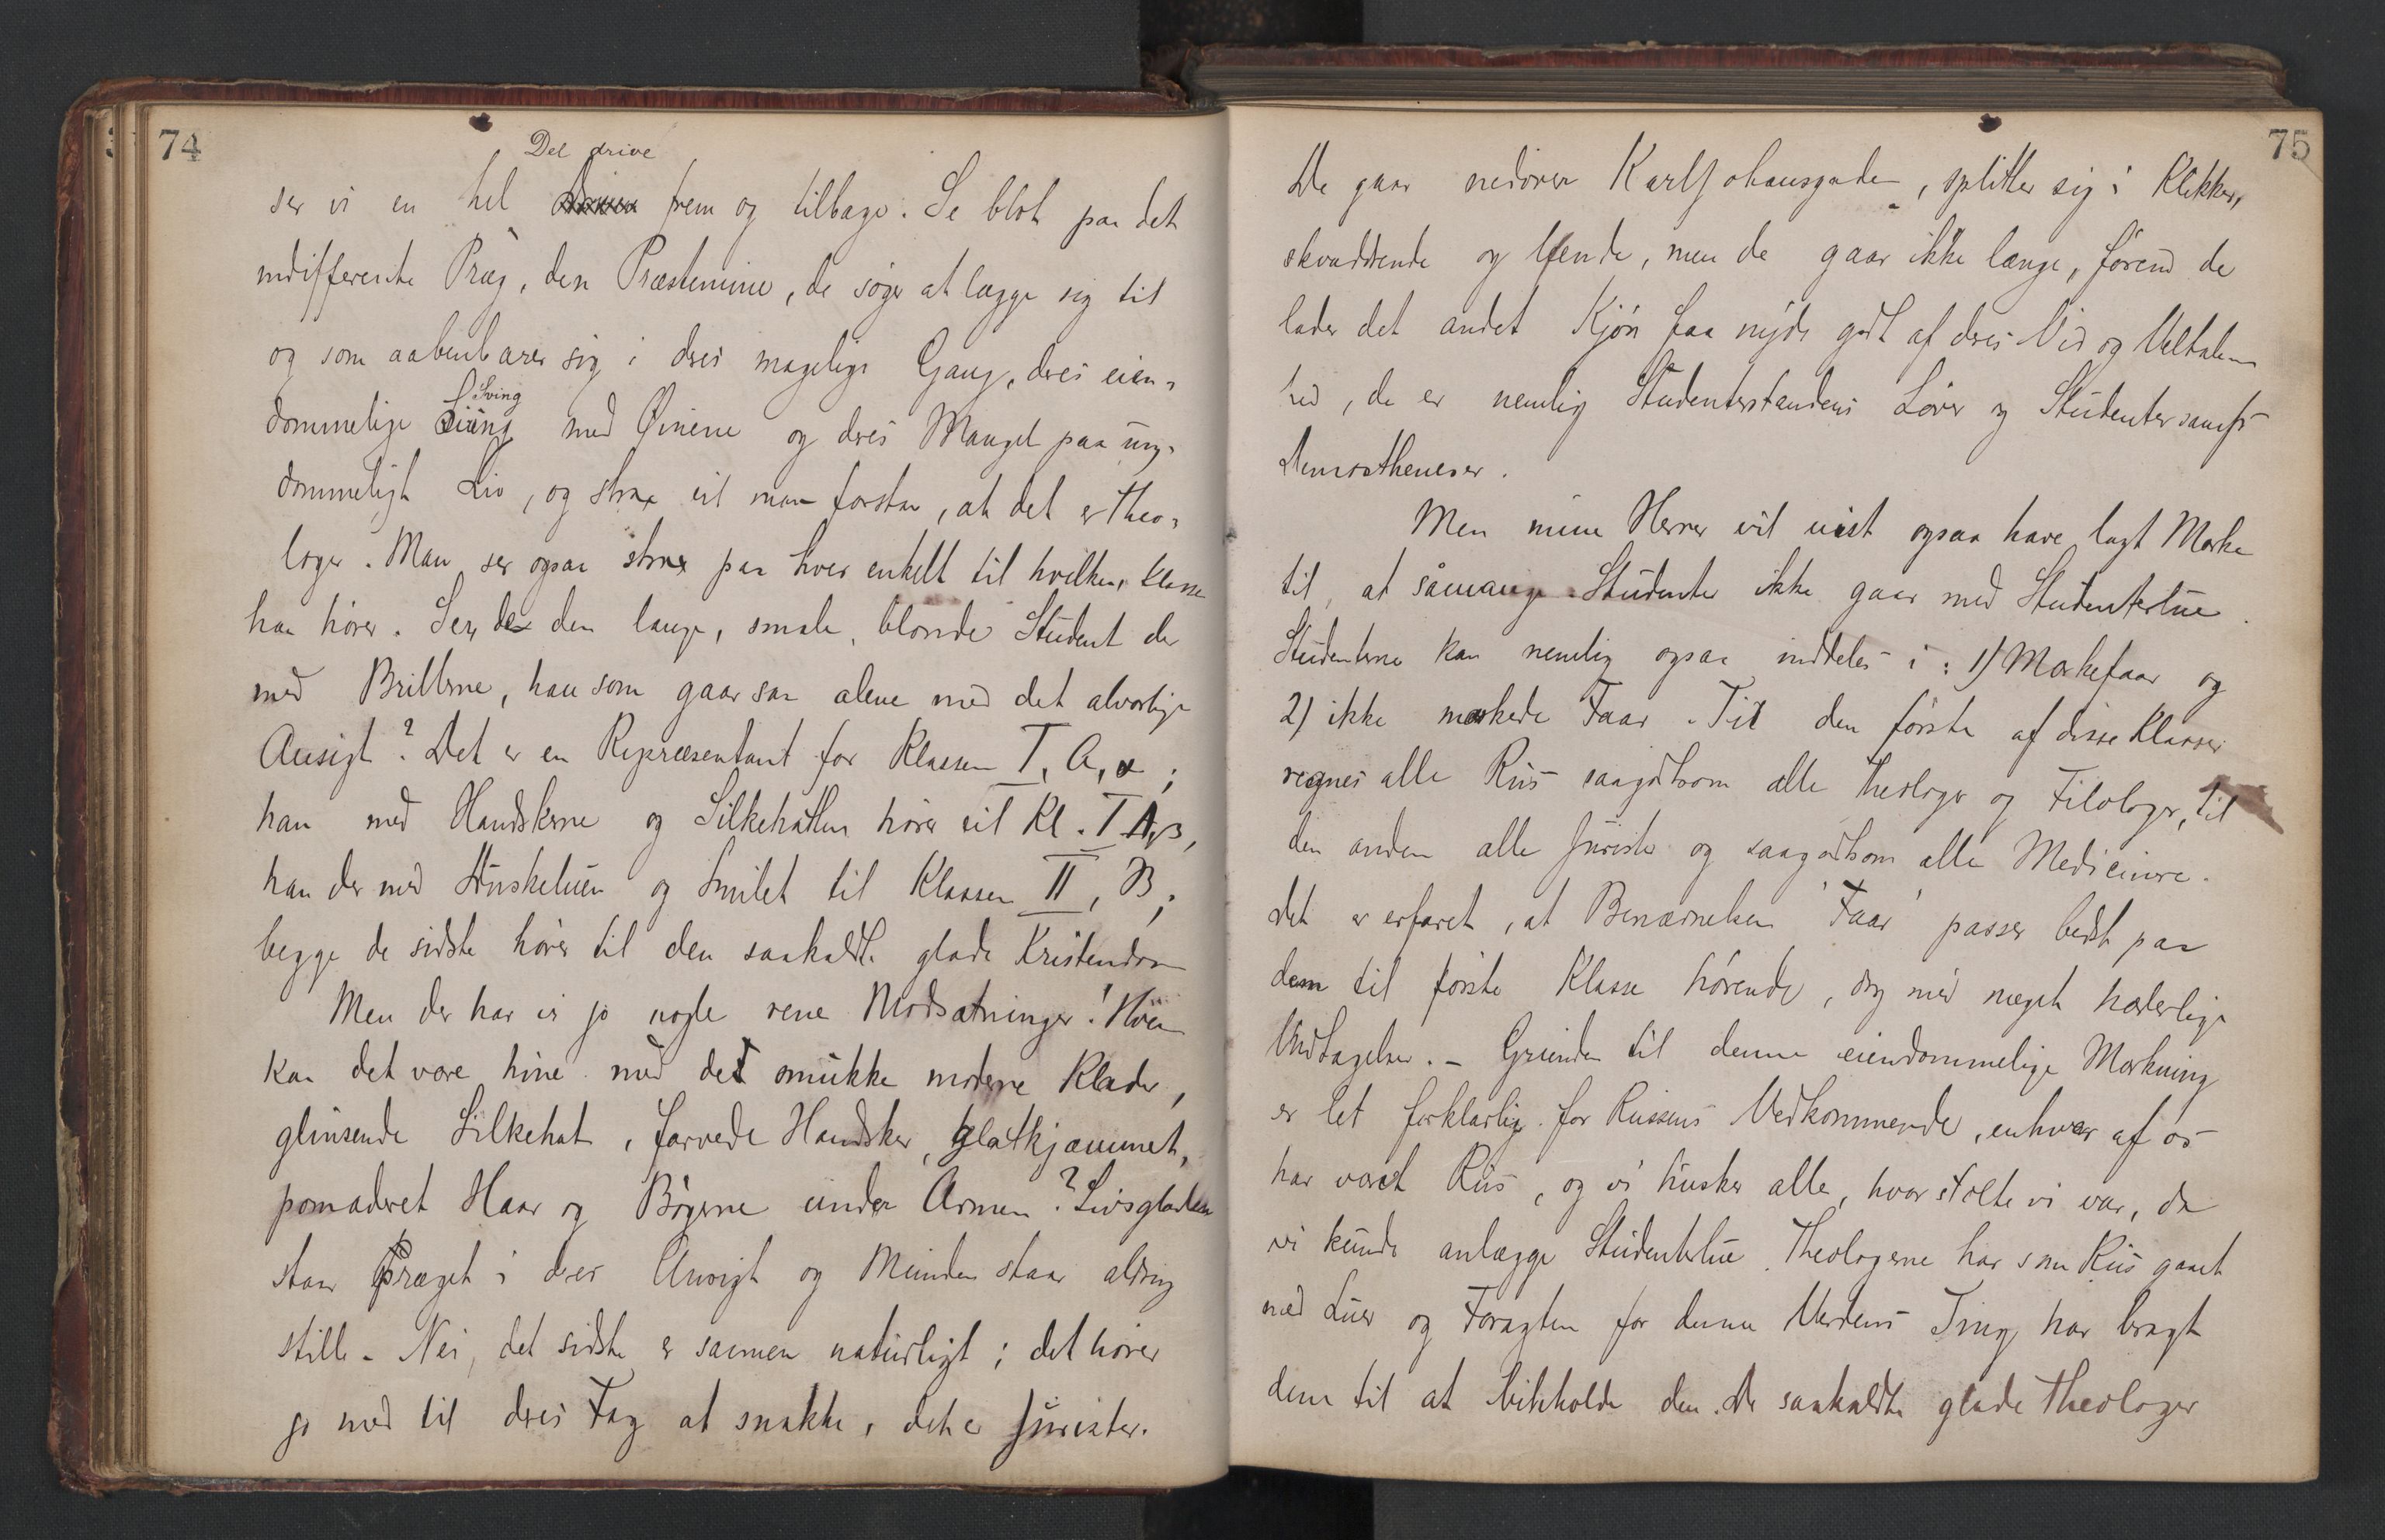 74
Del drive
ser vi en hel frem og tilbage. Se blot paa det
indifferente Præg, den Præstemine, de søger at lægge sig til
og som aabenbarer sig i deres magelige Gang, deres eien-
Sving
dommelige med Øinene og deres Mangel paa ung-
dommeligt Liv, og strax vil man forstaa, at det er Theo-
loger. Man ser ogsaa strax paa hver enkelt til hvilken Klasse
han hører. Ser de den lange, smale, blonde Student der
med Brillerne, han som gaar saa alene med det alvorlige
Ansigt? Det er en Repræsentant for Klassen I, A, α;
han med Handskerne og Silkehatten hører til Kl. I A, β,
han der med Duskeluen og Smilet til Klassen II, B;
begge de sidste hører til den saakaldte glade Kristendom
Men der har vi jo nogle rene Modsætninger! Hvem
kan det være hine med det smukke moderne Klæder,
glinsende Silkehat, farvede Handsker, glatkjæmmet,
pomaderet Haar og Bøgerne under Armen? Livsglæden
staar præget i deres Ansigt og Munden staar aldrig
stille - Nei, det sidste er sammen naturligt; det hører
jo med til deres Fag at snakke, det er Jurister.
75
De gaar nedover KarlJohansgade, splitter sig i Klikker,
skvaddrende og leende, men de gaar ikke længe, førend de
lader det andet Kjøn faa nyde godt af deres Vid og Veltalen
hed, de er nemlig Studenterstandens Løver og Studentersamfs
Demostheneser.
Men mine Herrer vil vist ogsaa have lagt Mærke
til, at såmange Studenter ikke gaar med Studenterlue.
Studenterne kan nemlig ogsaa inddeles i: 1) Mærkefaar og
2) ikke mærkede Faar. Til den første af disse Klasser
regnes alle Rus saagodtsom alle Theologer og Filologer, til
den anden alle Jurister og saagodtsom alle Medicinere.
Det er erfaret, at Benævnelsen 'Faar' passer bedst paa
dem til første Klasse hørende, dog med meget hæderlige
Undtagelser. - Grunden til denne eiendommelige Mærkning
er let forklarlig for Russens Vedkommende, enhver af os
har været Rus, og vi husker alle, hvor stolte vi var, da
vi kunde anlægge Studenterlue. Theologerne har som Rus gaaet
med Luer og Foragten for denne Verdens Ting har bragt
dem til at bibeholde den. De saakaldte glade Theologer